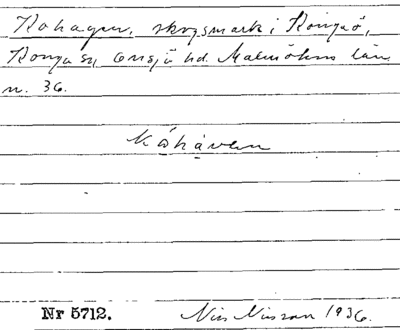 Kohagen, skogsmark i Kongaö,
Konga sn, Onsjö hd. Malmöhus län
n. 36.
kåhåven
Nr 5712.
Nils Nilsson 1936.